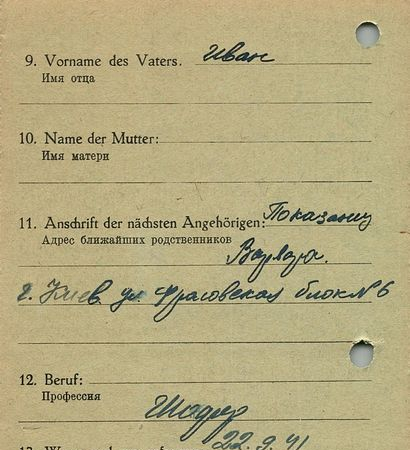 9. Vorname des Vaters. Иван
Имя отца
10. Name der Mutter:
Имя матери
11. Anschrift der nächsten Angehörigen:
Адрес ближайших родственников
г. Киев ул. блок № 6
12. Beruf:
Профессия
22.9.41